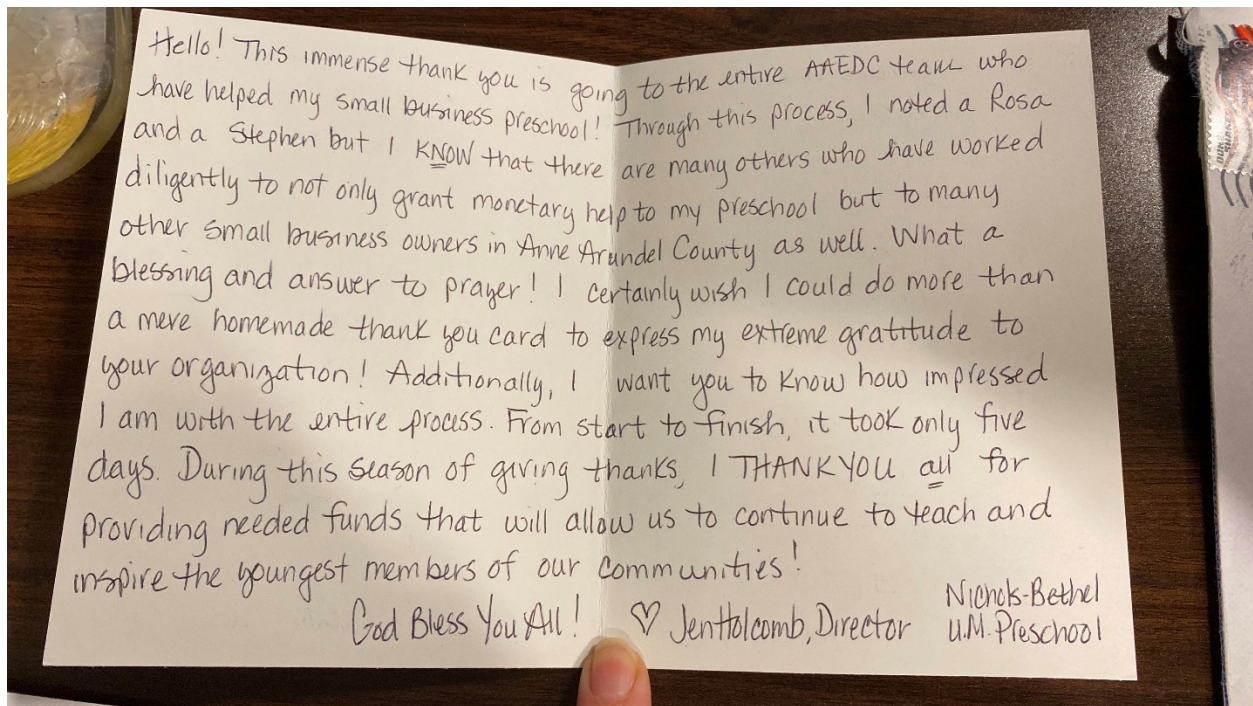 Hello! This immense thank you is going to the entire AAEDC team who
have helped my small business preschool! Through this process, I noted a Rosa
and a Stephen but I KNOW that there are many others who have worked
diligently to not only grant monetary help to my preschool but to many
other small business owners in Anne Arundel County as well. What a
blessing and answer to prayer! I certainly wish I could do more than
a mere homemade thank you card to express my extreme gratitude to
your organization! Additionally, I want you to know how impressed
I am with the entire process. From start to finish, it took only five
days. During this season of giving thanks, I THANK YOU all for
providing needed funds that will allow us to continue to teach and
inspire the youngest members of our communities!
God Bless You All! ♡ Jen Holcomb, Director
Nichols-Bethel
U.M. Preschool